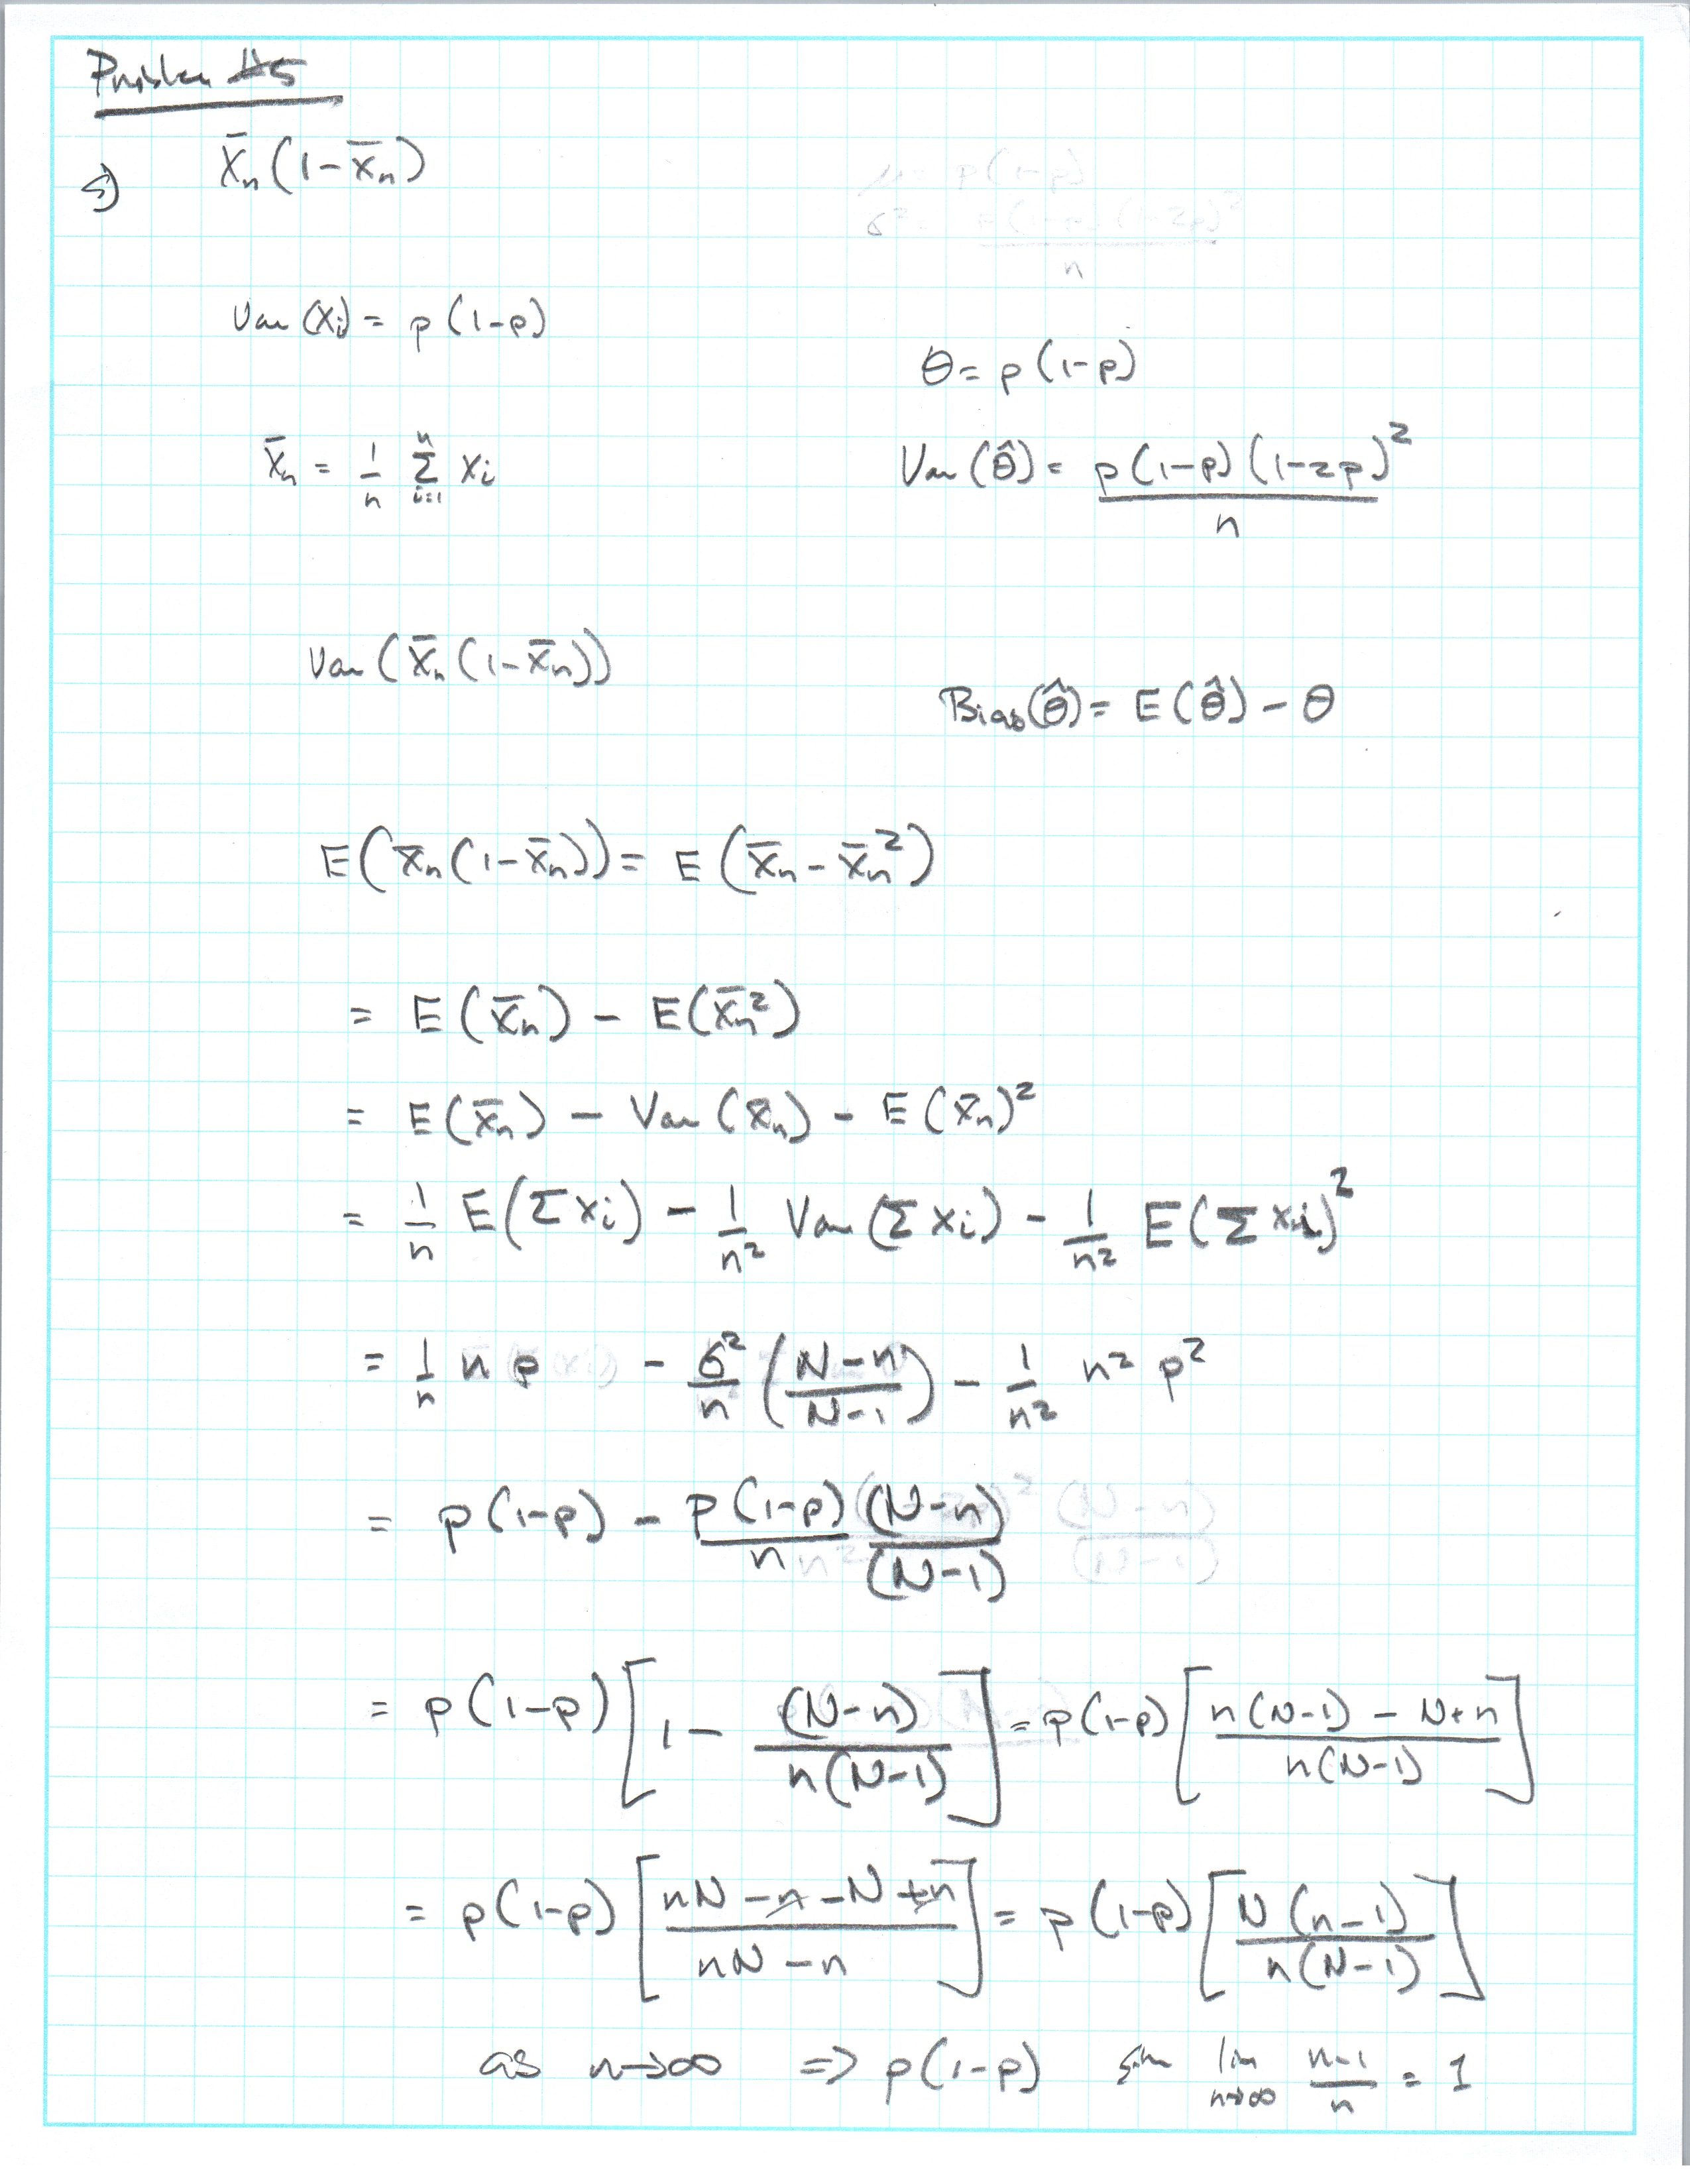 Problem #5
5) X̄ₙ(1-x̄ₙ)
μ = p(1-p)
σ² = p(1-p)(1-2p)² / n
Var(Xi) = p(1-p)
θ = p(1-p)
x̄ₙ = 1/n Σᵢ₌₁ⁿ xi
Var(θ̂) = p(1-p)(1-2p)² / n
Var(x̄ₙ(1-x̄ₙ))
Bias(θ̂) = E(θ̂) - θ
E(x̄ₙ(1-x̄ₙ)) = E(x̄ₙ - x̄ₙ²)
= E(x̄ₙ) - E(x̄ₙ²)
= E(x̄ₙ) - Var(x̄ₙ) - E(x̄ₙ)²
= 1/n E(Σxi) - 1/n² Var(Σxi) - 1/n² E(Σxi)²
= 1/n n p - σ²/n ((N-n)/(N-1)) - 1/n² n² p²
= p(1-p) - p(1-p)/n (N-n)/(N-1)
= p(1-p)[1 - (N-n)/(n(N-1))] = p(1-p)[(n(N-1) - N+n)/(n(N-1))]
= p(1-p)[(nN-n-N+n)/(nN-n)] = p(1-p)[N(n-1)/(n(N-1))]
as n→∞ ⇒ p(1-p) lim n→∞ (n-1)/n = 1